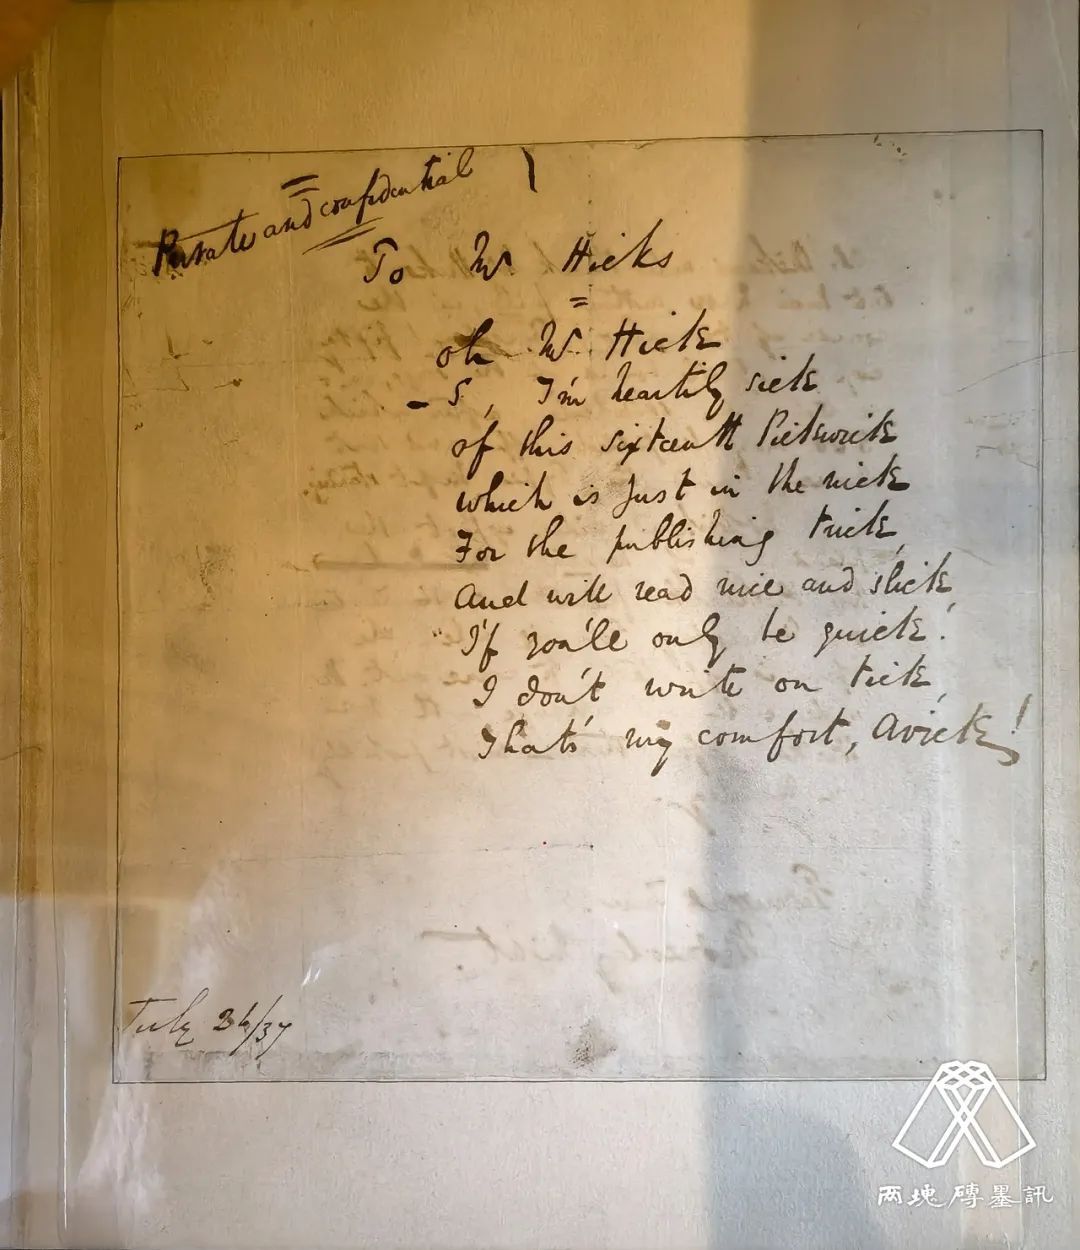 Private and confidential
To Mr Hicks
oh Mr Hick
- S, I'm heartily sick
of this sixteenth Pickwick
which is just in the nick
For the publishing trick,
And will read nice and slick
If you'll only be quick!
I don't write on tick,
That's my comfort, avick!
July 26/37
两塊磚墨訊